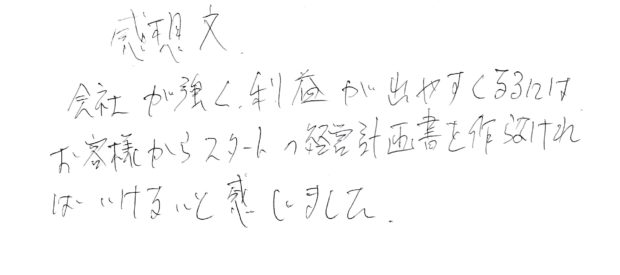 感想文.
会社が強く、利益が出やすくなるには
お客様からスタートの経営計画書を作らなければ
ばいけないと感じました.